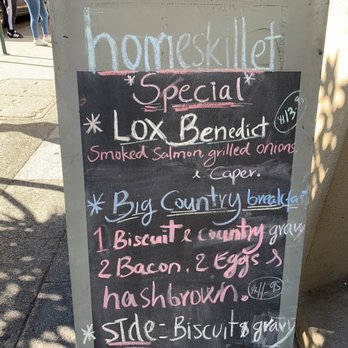 homeskillet
*Special*
* Lox Benedict
Smoked Salmon, grilled onions
& Caper.
* Big Country breakfast
1 Biscuit & country gravy
2 Bacon. 2 Eggs &
hashbrown.
* Side = Biscuit & gravy